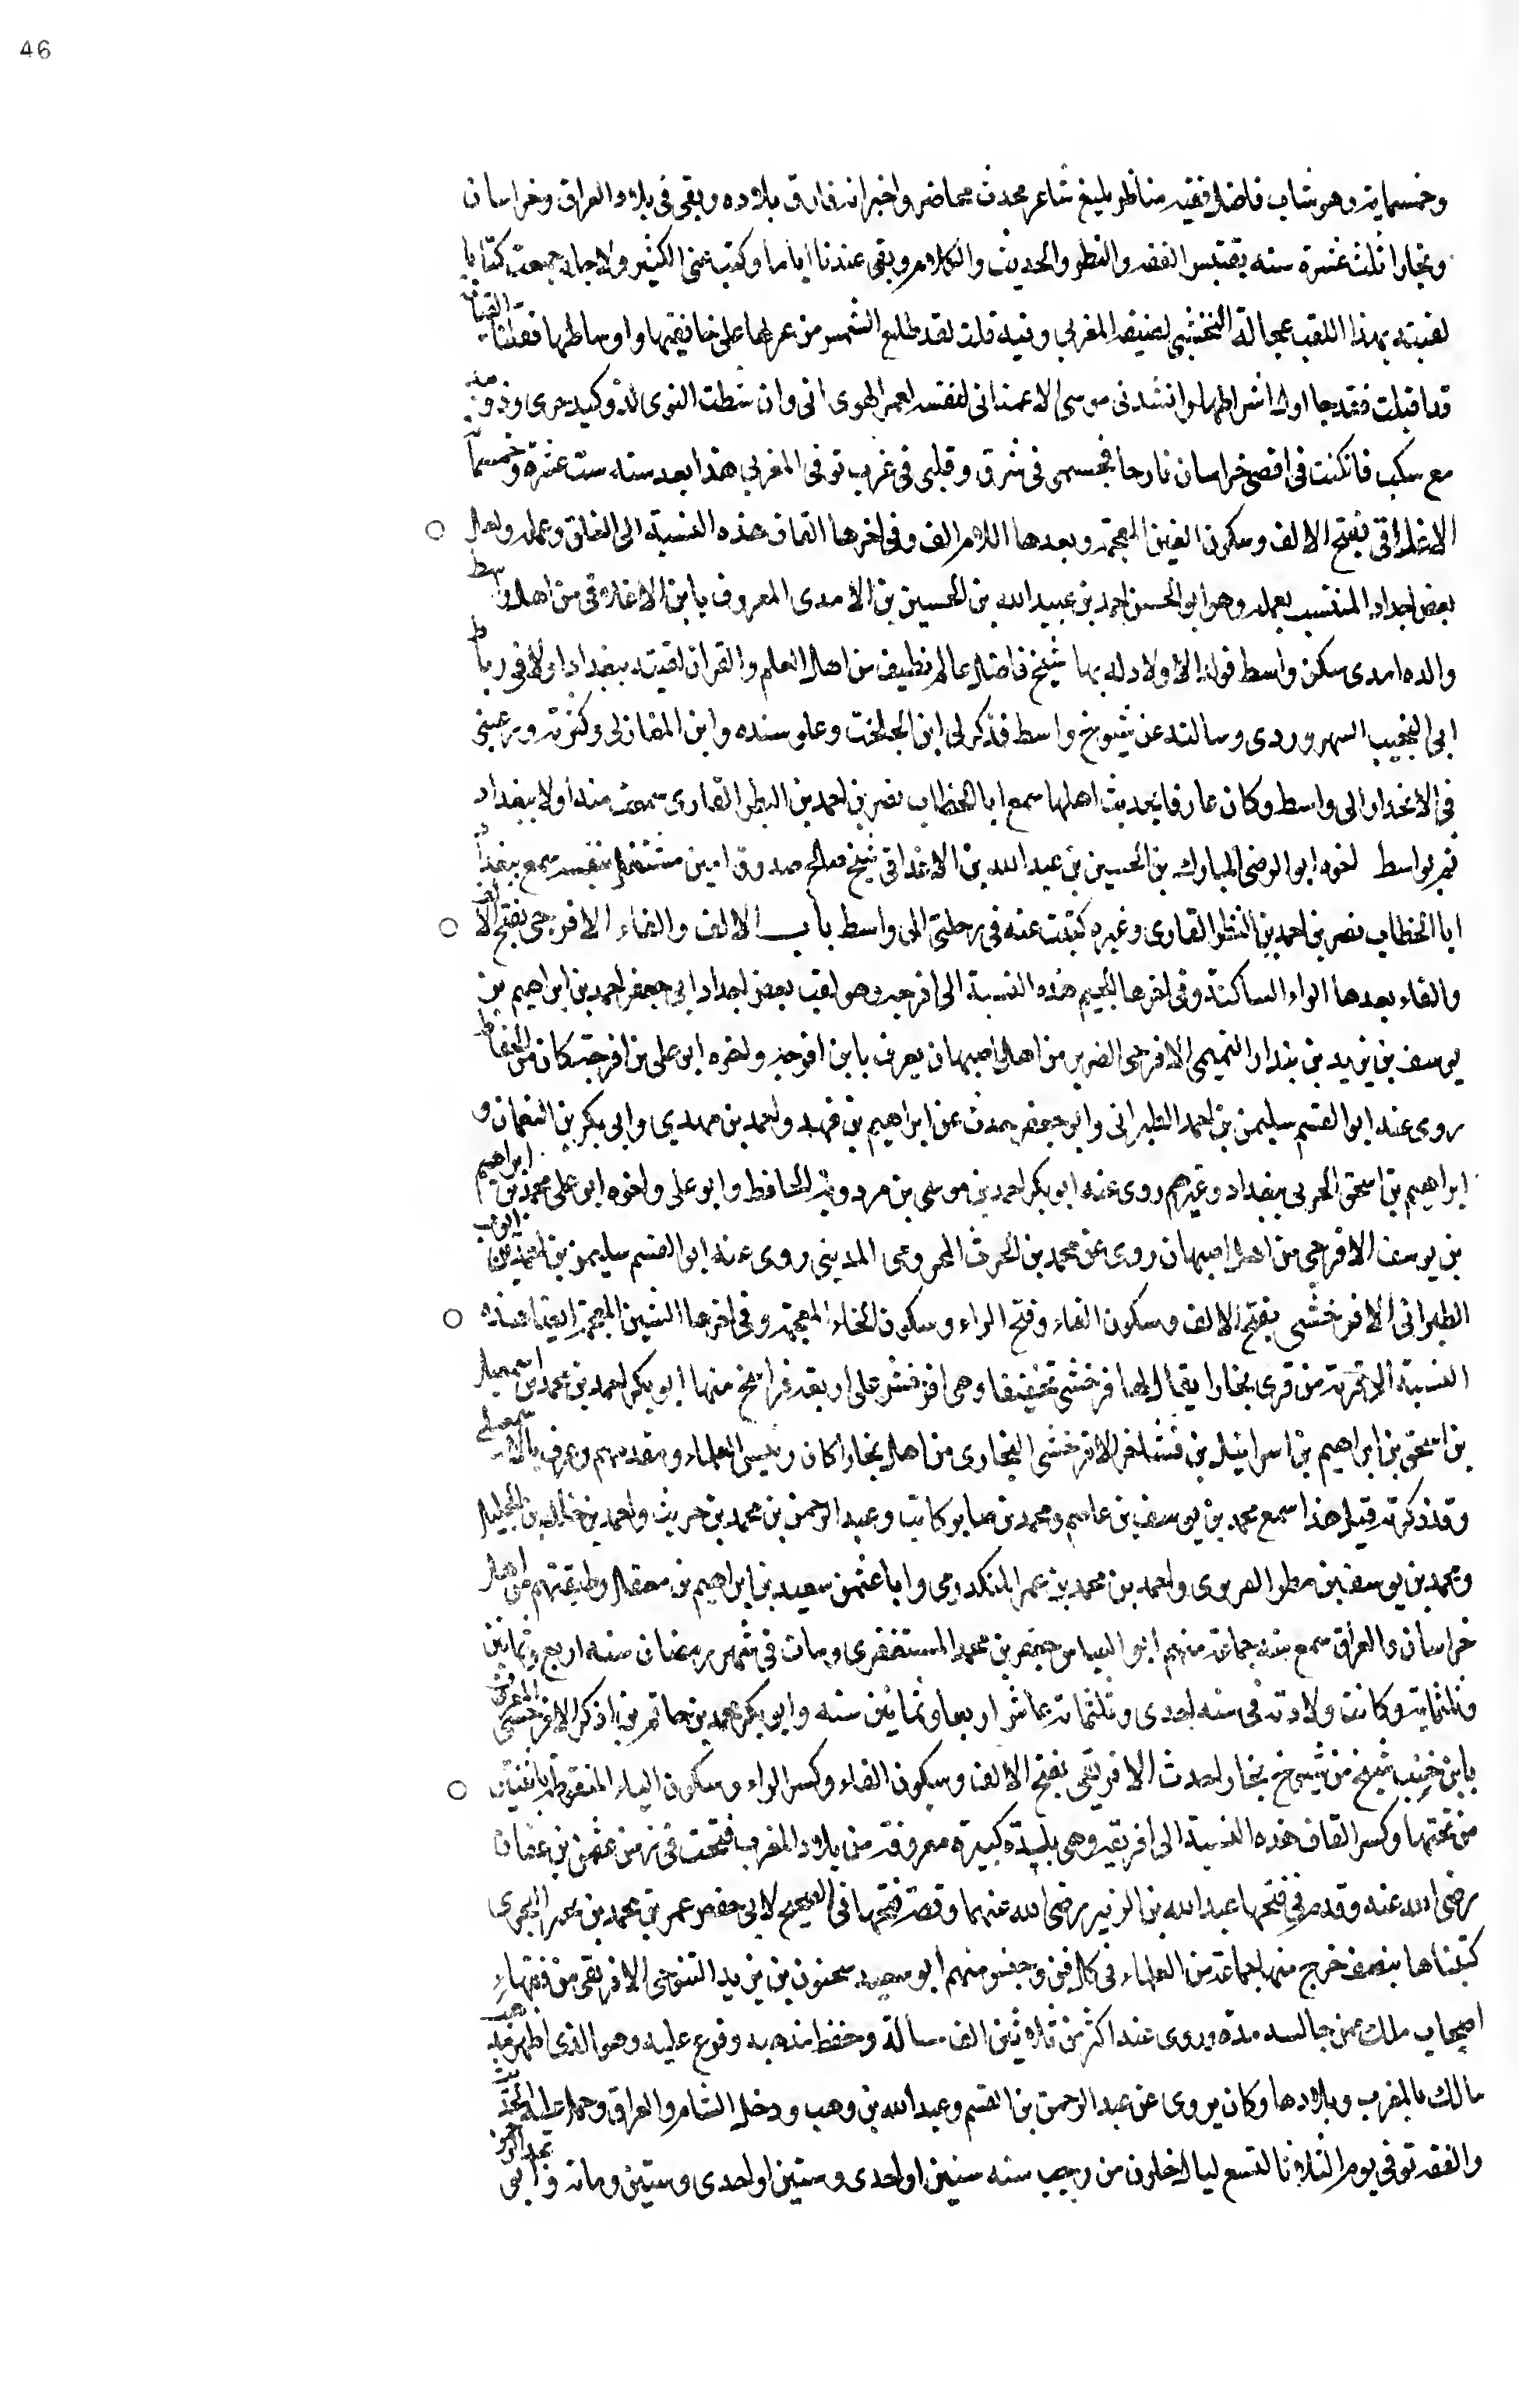 46
وخمسماية وهو شاب فاضل فقيه مناظر بليغ شاعر محدث محاضر واخبر انه فارق بلاده وبقى فى بلاد العراق وخراسان
وبخارا ثلث عشرة سنه يقتبس الفقه والنظر والحديث والكلام وبقى عندنا اياما وكتب عنى الكثير ولاجله جمعت كتابا
لقبته بهذا اللقب عجالة النخشبى لضيفه المغربي وفيه قلت لقد طلع الشمس من غربها على خافقيها واوساطها فقلنا القيامة
قد اقبلت فقد جا اول اشراطها وانشدنى موسى الاغمانى لنفسه لعمر الهوى انى وان شطت النوى لذو كبد حرى وذو مدمع
مع سكب فانكنت فى اقصى خراسان نازحا فجسمى فى شرق وقلبى فى غرب توفى المغربي هذا بعد سنه ست عشرة وخمسمآ
الاغلاقى بفتح الالف وسكون الغين المعجمه وبعدها اللام الف وفى اخرها القاف هذه النسبة الى الغلق وعمله ولعل
بعض اجداد المنتسب يعمله وهو ابو الحسن احمد بن عبيد الله بن الحسين بن الامدى المعروف بابن الاغلاقى من اهل واسط
والده امدى سكن واسط فولد الاولاد له بها شيخ فاضل عالم نظيف من اهل العلم والقران لقيته ببغداد اولا فى رباط
ابى النجيب السهروردى وسالته عن شيوخ واسط فذكر لى ابن الجلخت وعلو سنده وابن المغازلى وكثرته ورغبنى
فى الانحدار الى واسط وكان عارفا بحديث اهلها سمع ابا الخطاب نصر بن احمد بن البطر القارى سمعت منه اولا ببغداد
ثم بواسط اخوه ابو الرضى المبارك بن الحسين بن عبد الله بن الاغلاقى شيخ صالح صدوق امين مشتغل بنفسه سمع ببغداد
ابا الخطاب نصر بن احمد بن النظر القارى وغيره كتبت عنه فى رحلتى الى واسط باب الالف والفاء الافرجى بفتح الالف
والفاء بعدها الراء الساكنة وفى اخرها الجيم هذه النسبة الى افرجه وهو لقب بعض اجداد ابى جعفر احمد بن ابراهيم بن
يوسف بن يزيد بن بندار التميمى الافرجى الضرير من اهل اصبهان يعرف بابن افرجه واخوه ابو على بن افرجه كان من الحفاظ
روى عنه ابو القسم سليمن بن احمد الطبرانى وابو جعفر يحدث عن ابراهيم بن فهد واحمد بن مهدي وابى بكر بن النعمان و
ابراهيم بن اسحق الحربى ببغداد وغيرهم روى عنه ابو بكر احمد بن موسى بن مردويه الحافظ وابو على واخوه ابو على محمد بن ابراهيم
بن يوسف الافرجى من اهل اصبهان روى عن محمد بن الحرث المخزومى المدينى روى عنه ابو القسم سليمن بن احمد بن ايوب
الطبرانى الافرخشى بفتح الالف وسكون الفاء وفتح الراء وسكون الخاء المعجمه وفى اخرها الشين المعجمه ايضا هذه
النسبة الى قرية من قرى بخارا يقال لها فرخشى تخفيفا وهى افرخش على اربعة فراسخ منها ابو بكر احمد بن محمد بن اسمعيل
بن اسحق بن ابراهيم بن اسرائيل بن الافرخشى البخارى من اهل بخارا كان رئيس العلماء ومقدمهم وعرف بالاسمعيلى
وقد ذكرته قبل هذا سمع محمد بن يوسف بن عاصم ومحمد بن صابر كاتب وعبد الرحمن بن محمد بن حريث واحمد بن خالد بن الخليل
ومحمد بن يوسف بن مطر الفربرى واحمد بن محمد بن عمر المنكدرى وابا عثمن سعيد بن ابراهيم بن معقل وطبقتهم من اهل
خراسان والعراق سمع منه جماعة منهم ابو العباس جعفر بن محمد المستغفرى ومات فى شهر رمضان سنه اربع وثمانين
وثلثماية وكانت ولادته فى سنه احدى وثلثمائه عاش اربعا وثمانين سنه وابو بكر محمد بن حاتم بن اذكر الافرخشى المعروف
بابن خنب شيخ من شيوخ بخارا حدث الافريقى بفتح الالف وسكون الفاء وكسر الراء وسكون الياء المنقوطه باثنتين
من تحتها وكسر القاف هذه النسبة الى افريقيه وهى بليدة كبيرة معروفة من بلاد المغرب فتحت فى زمن عثمن بن عفان
رضى الله عنه وقدم فى فتحها عبد الله بن الزبير رضى الله عنهما وقصة فتحها فى الصحيح لابى حفص عمر بن محمد بن بحير البجيرى
كتبناها بنسف خرج منها جماعة من العلماء فى كل فن وجنس منهم ابو سعيد سحنون بن يزيد التنوخى الافريقى من فقهاء
اصحاب ملك ممن جالسه مده وروى عنه اكثر من ثلاثين الف مسالة وحفظ مذهبه وفرع عليه وهو الذى اظهر مذهب
مالك بالمغرب وبلادها وكان يروى عن عبد الرحمن بن القسم وعبد الله بن وهب ودخل الشام والعراق وحمل عليه الحديث
والفقه توفى يوم الثلاثا لتسع ليال خلون من رجب سنه ستين او احدى وستين او احدى وستين ومائه وابو عبد الرحمن